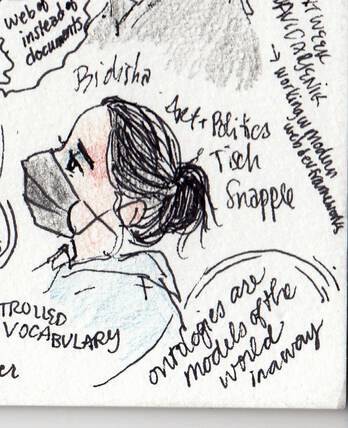 web of
instead of
documents
Bidisha
Art + Politics
Tisch
Snapple
→ working w modern
web dev frameworks
TROLLED
VOCABULARY
er
ontologies are
models of the
world
in a way